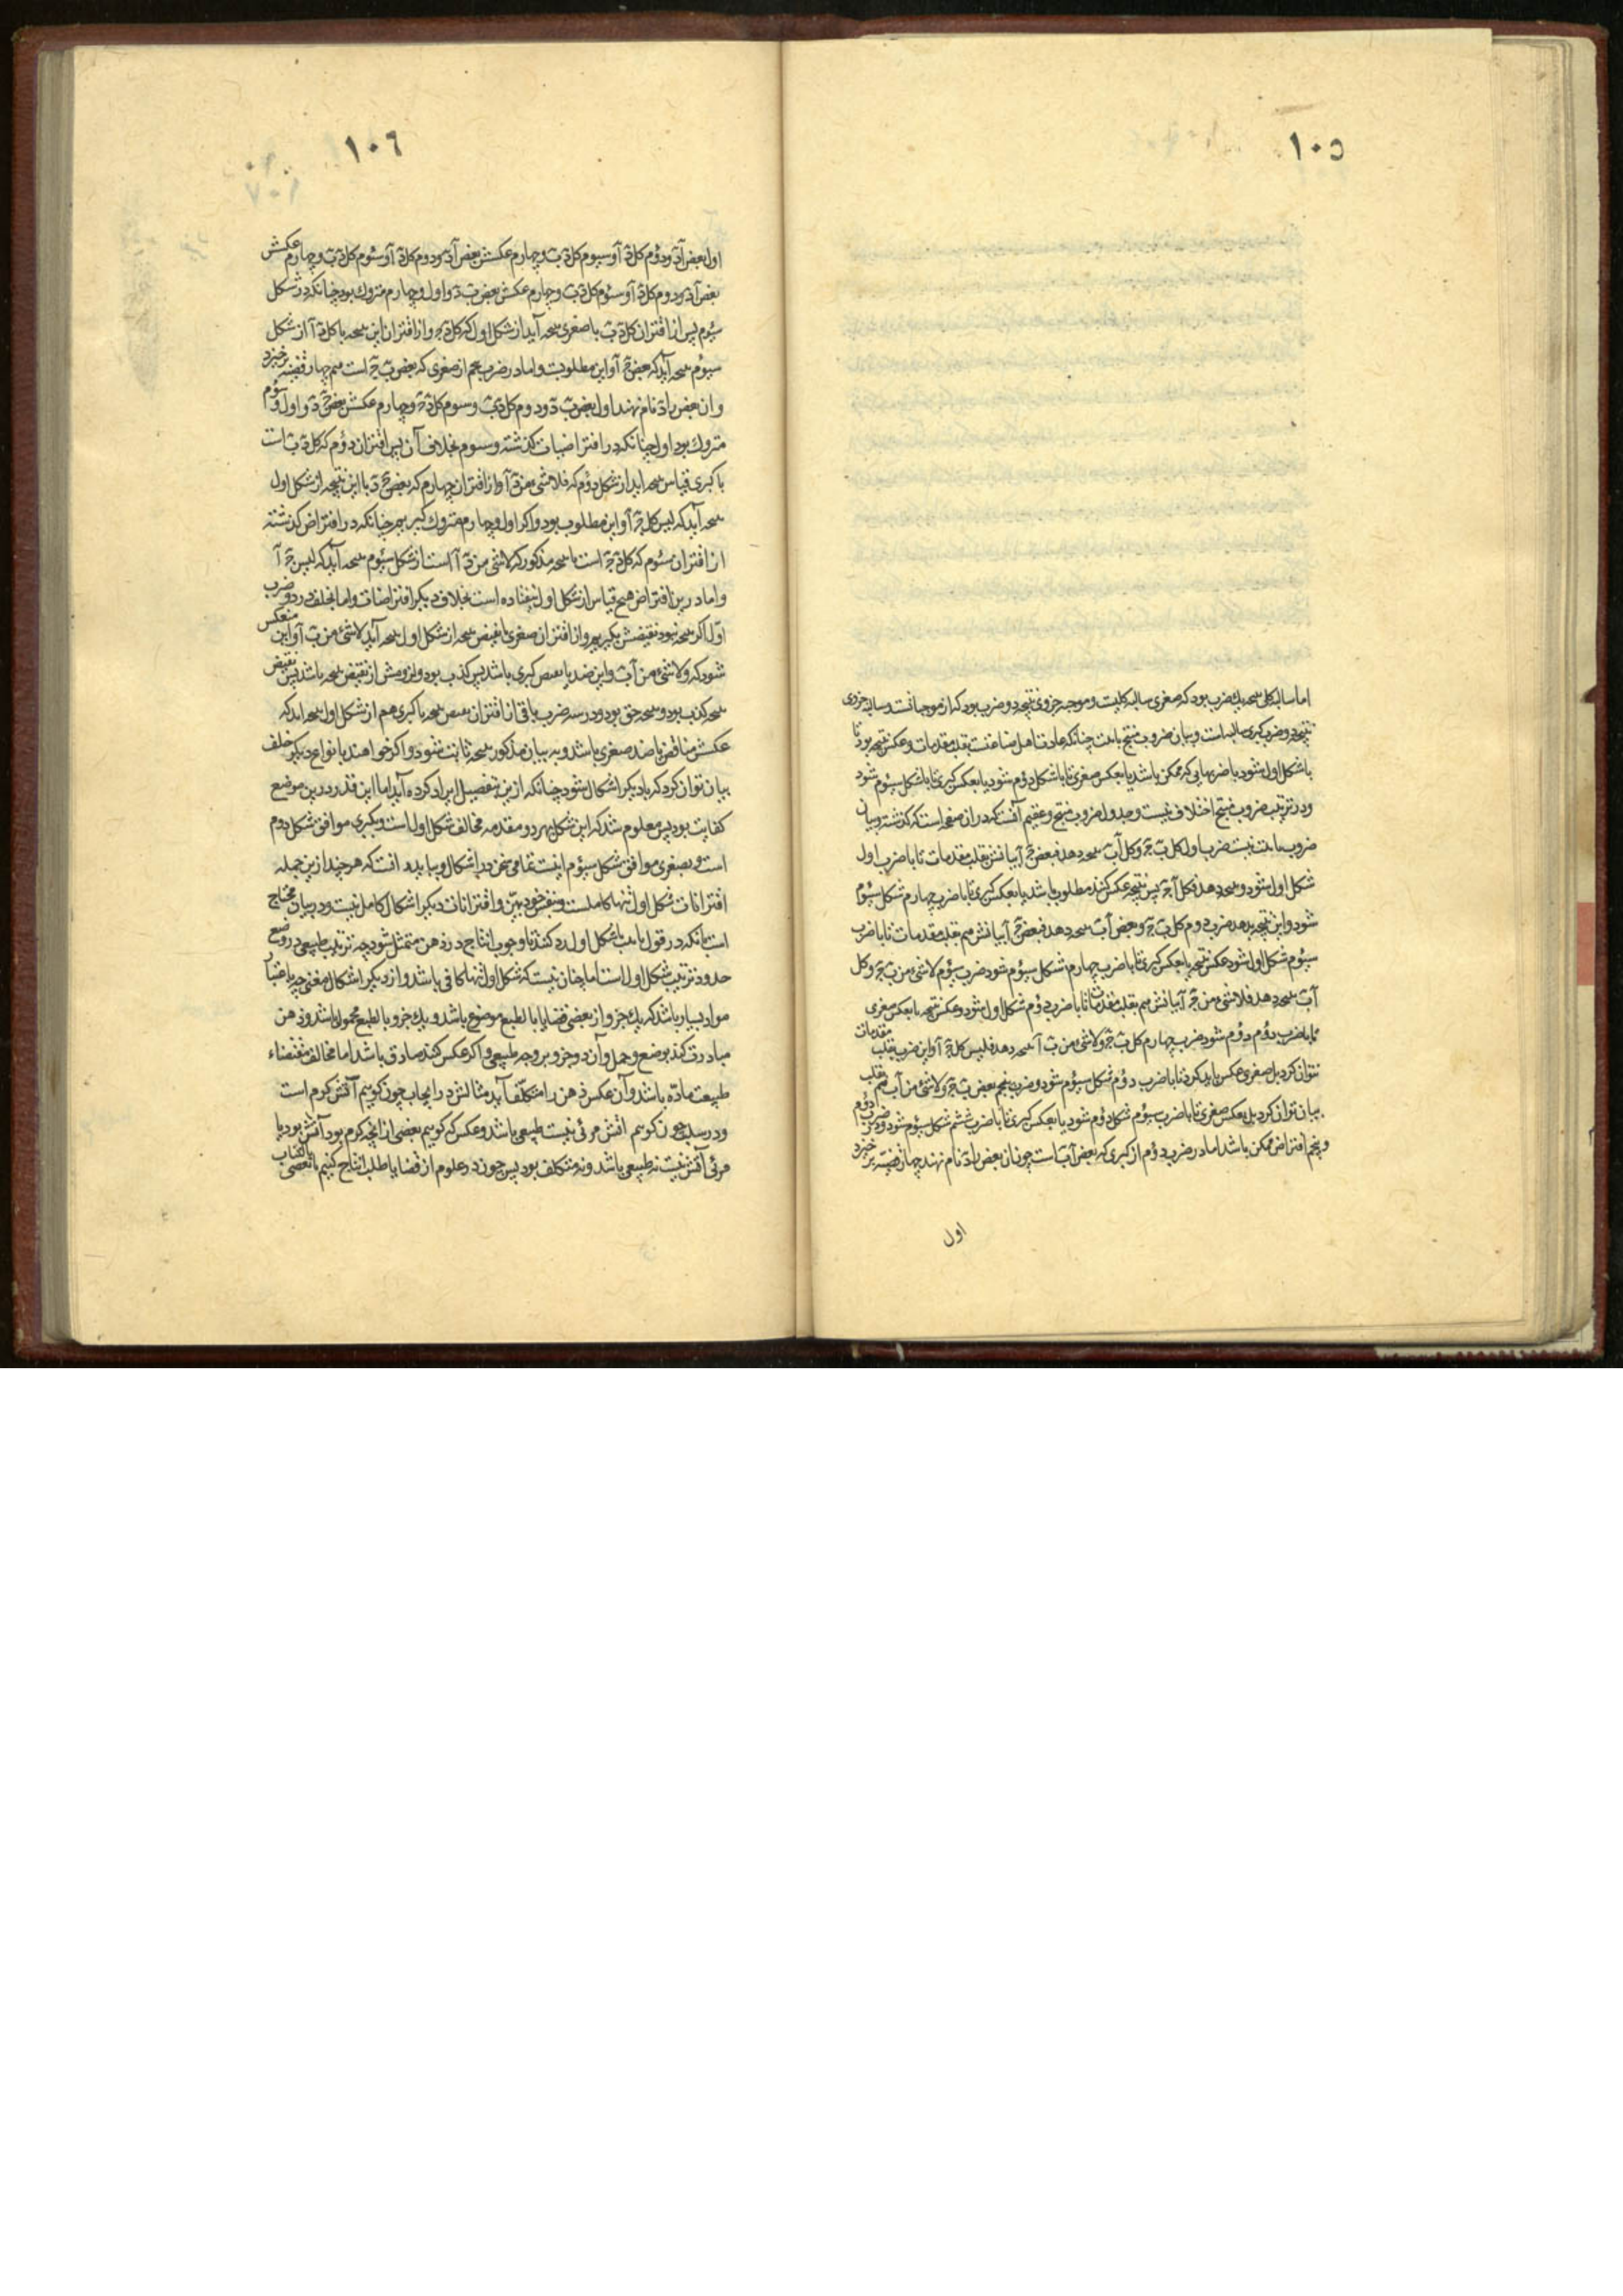 ١٠٥
اما سالبه کلی نتیجه یک ضرب بود که صغری سالبه کلیست و موجبه جزوی نتیجه دو ضرب بود که از موجباتست و سالبه جزوی
نتیجه دو ضرب کبری سالبه است و بیان ضروب منتج چنانکه عادت اهل صناعتست بقلب مقدمات و عکس نتیجه بود تا
باشکل اول شود یا ضربهایی که ممکن باشد یا بعکس صغری تا باشکل دوم شود یا بعکس کبری تا باشکل سیوم شود
و در ترتیب ضروب منتج اختلاف نیست و جدول ضروب منتج و عقیم آنست که در ان صفحه است که گذشته و بیان
ضروب اینست ضرب اول کل ب ج و کل آ ب نتیجه دهد فبعض ج آ بیانش بقلب مقدمات تا با ضرب اول
شکل اول شود و نتیجه دهد فکل آ ج پس نتیجه عکس کنند مطلوب باشد یا بعکس کبری تا با ضرب چهارم شکل سیوم
شود و این نتیجه بدهد ضرب دوم کل ب ج و بعض آ ب نتیجه دهد فبعض ج آ بیانش هم بقلب مقدمات تا با ضرب
سیوم شکل اول شود عکس نتیجه یا بعکس کبری تا با ضرب چهارم شکل سیوم شود ضرب سیوم لا شی من ب ج و کل
آ ب نتیجه دهد فلا شی من ج آ بیانش هم بقلب مقدمات تا با ضرب دوم شکل اول شود و عکس نتیجه یا بعکس صغری
تا با ضرب دوم دوم شود ضرب چهارم کل ب ج و لا شی من آ ب نتیجه دهد فلیس کل ج آ و این ضرب بقلب مقدمات
نتوان کرد بل صغری عکس باید کرد تا با ضرب دوم شکل سیوم شود و ضرب پنجم بعض ب ج و لا شی من آ ب هم بقلب
بیان نتوان کرد بل بعکس صغری تا با ضرب سیوم شکل دوم شود یا بعکس کبری تا با ضرب ششم شکل سیوم شود و در ضرب دوم
و پنجم افتراض ممکن باشد اما در ضرب دوم از کبری که بعض آ ب است چون ان بعض را د نام نهند چهار قضیه برخیزد
اول
١٠٦
اول بعض آ د و دوم کل د آ و سیوم کل د ب و چهارم عکسش بعض آ د و دوم کل د آ و سیوم کل د ب و چهارم عکسش
بعض آ د و دوم کل د آ و سیوم کل د ب و چهارم عکسش بعض ب د و اول و چهارم متروک بود چنانکه در شکل
سیوم پس از اقتران کل د ب با صغری نتیجه آید از شکل اول که کل د ج و از اقتران این نتیجه با کل د آ از شکل
سیوم نتیجه آید که بعض ج آ و این مطلوبست و اما در ضرب پنجم از صغری که بعض ب ج است هم چهار قضیه برخیزد
و ان بعض را د نام نهند اول بعض ب د و دوم کل د ب و سوم کل د ج و چهارم عکسش بعض ج د و اول و سوم
متروک بود اول چنانکه در افتراضیات گذشته و سوم بخلاف آن پس اقتران دوم که کل د ب است
با کبری قیاس نتیجه آید از شکل دوم که فلا شی من د آ و از اقتران چهارم که بعض ج د با این نتیجه از شکل اول
نتیجه آید که لیس کل ج آ و این مطلوب بود و اگر اول و چهارم متروک گیریم چنانکه در افتراض گذشته
از اقتران سوم که کل د ج است با نتیجه مذکور که لا شی من د آ است از شکل سیوم نتیجه آید که لیس ج آ
و اما درین افتراض هیچ قیاس از شکل اول نیفتاده است بخلاف دیگر افتراضات و اما بخلف در دو ضرب
اول اگر نتیجه نبود نقیضش بگیریم و از اقتران صغری با نقیض نتیجه از شکل اول نتیجه آید لا شی من ب آ و این منعکس
شود که و لا شی من آ ب و این ضد یا نقیض کبری باشد پس کذب بود و لزومش از نقیض نتیجه باشد پس نقیض
نتیجه کذب بود و نتیجه حق بود و در سه ضرب باقی از اقتران نقیض نتیجه با کبری هم از شکل اول نتیجه آید که
عکسش مناقض یا ضد صغری باشد و به بیان مذکور نتیجه ثابت شود و اگر خواهند بانواع دیگر خلف
بیان توان کرد که با دیگر اشکال شود چنانکه ازین تفصیل ایراد کرده آید اما این قدر درین موضع
کفایت بود پس معلوم شد که این شکل بهر دو مقدمه مخالف شکل اول است و بکبری موافق شکل دوم
است و بصغری موافق شکل سیوم اینست تمامی سخن در اشکال و بباید دانست که هر چند ازین جمله
اقترانات شکل اول تنها کاملست و بنفس خود بین و اقترانات دیگر اشکال کامل نیست و در بیان محتاج
است بانکه در قول با شکل اول رد کنند تا وجوب انتاج در ذهن متمثل شود چه ترتیب طبیعی در وضع
حدود ترتیب شکل اول است اما چنان نیست که شکل اول تنها کافی باشد و از دیگر اشکال مغنی چه باعتبار
مواد بسیار باشد که یک جزو از بعضی قضایا بالطبع موضوع باشد و یک جزو بالطبع محمول باشد و ذهن
مبادرت کند بوضع و حمل و آن دو جزو بر وجه طبیعی و اگر عکس کنند صادق باشد اما مخالف مقتضاء
طبیعت ماده باشد و آن عکس ذهن را متکلف آید مثالش در ایجاب چون گوییم آتش گرم است
و در سلب چون گوییم آتش مرئی نیست طبیعی باشد و عکس که گوییم بعضی از آنچه گرم بود آتش بود یا
مرئی آتش نیست نه طبیعی باشد و نه متکلف بود پس چون در علوم از قضایا طلب انتاج کنیم یا بعضی